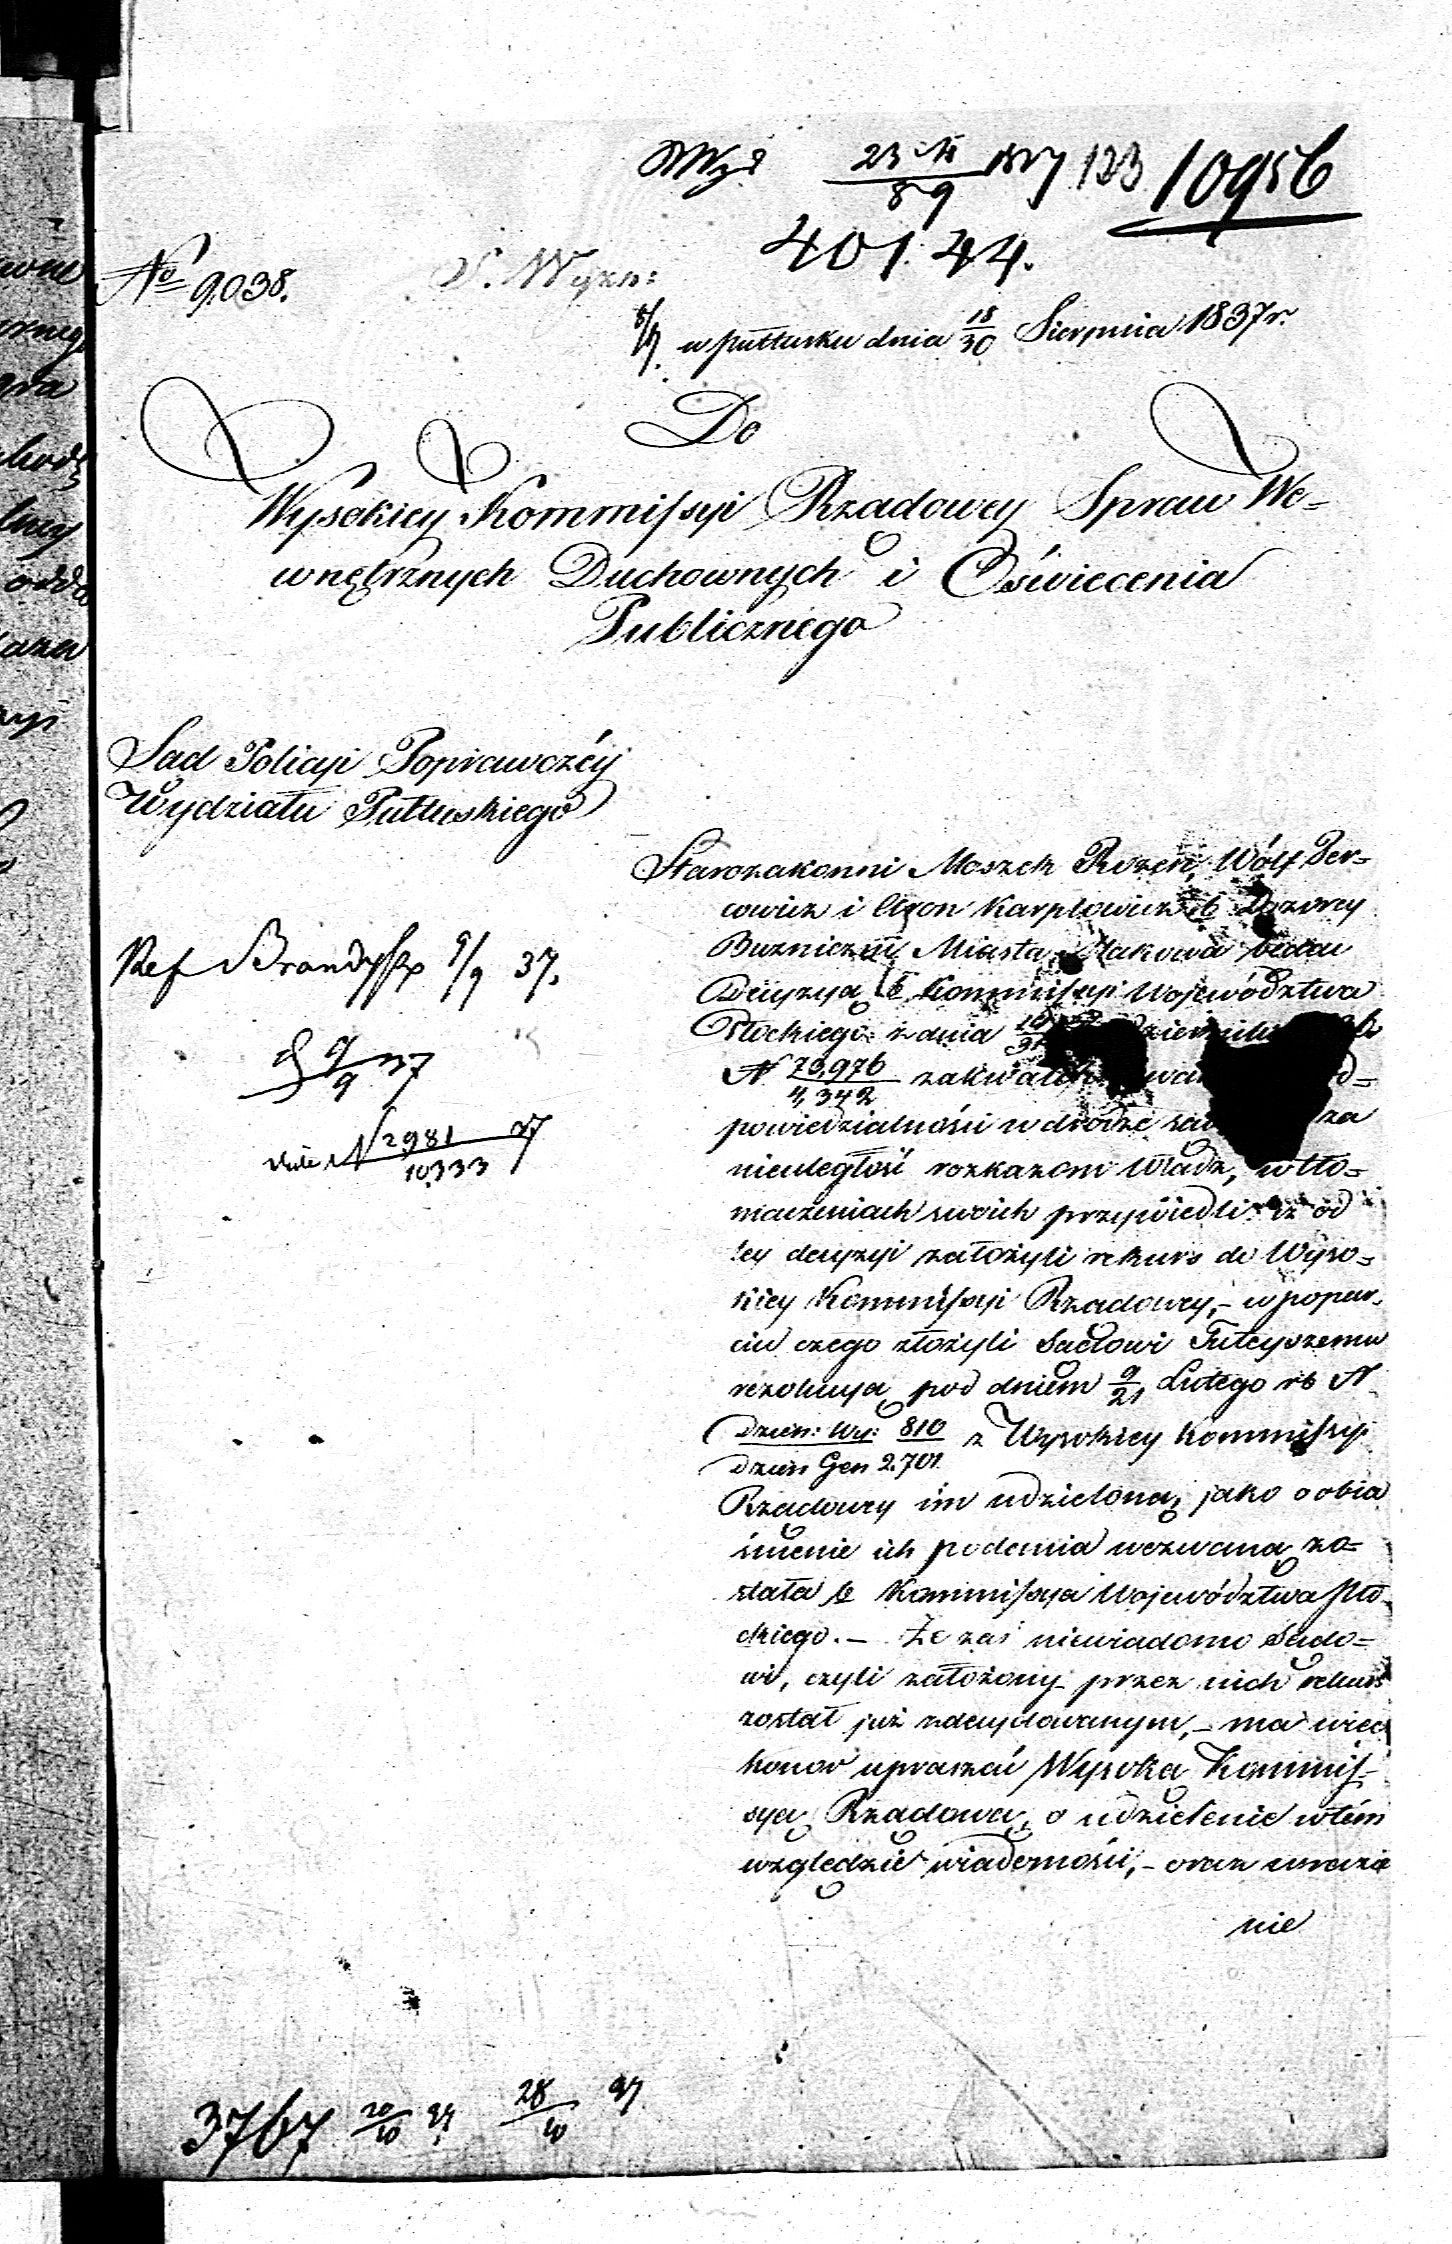 10956
401.44.
No 9.038.
w Pułtusku dnia 18/30 Sierpnia 1837 r.
Do
Wysokiey Kommissyi Rządowey Spraw We=
wnętrznych Duchownych i Oświecenia
Publicznego
Sąd Policyi Poprawczéy
Wydziału Pułtuskiego
Starozakonni Moszek Rozen, Wólf Ber=
cowicz i Aron Karplowicz b. Dozorcy
Bużniczni Miasta Makowa będąc
Decyzyą b. Kommissyi Województwa
Płockiego z dnia
N 79,976/4,342 zakwalifikowani
powiedzialności w drodze za
nieuległość rozkazom Władz, w tło=
maczeniach swoich przywiedli: iż od
tey decyzyi założyli rekurs do Wyso=
kiey Kommissyi Rządowey,- w popar=
ciu czego złożyli Sądowi Tuteyszemu
rezolucyą pod dniem 9/21 Lutego rb N
Dzien: Wy: 810 z Wysokiey Kommissyi
Dzien Gen 2.701
Rządowey im udzieloną, jako o obja
śnienie ich podania wezwaną zo=
stała b Kommissya Województwa Pło=
ckiego.- Że zaś niewiadomo Sądo=
wi, czyli założony przez nich rekurs
został już zdecydowanym,- ma więc
honor upraszać Wysoką Kommis=
syą Rządową, o udzielenie w tém
względzie wiadomości,- oraz w razie
nie
Ref 9/9 37.
9/9 37
N 2981/10333 37
3767 20/10 37 28/10 37